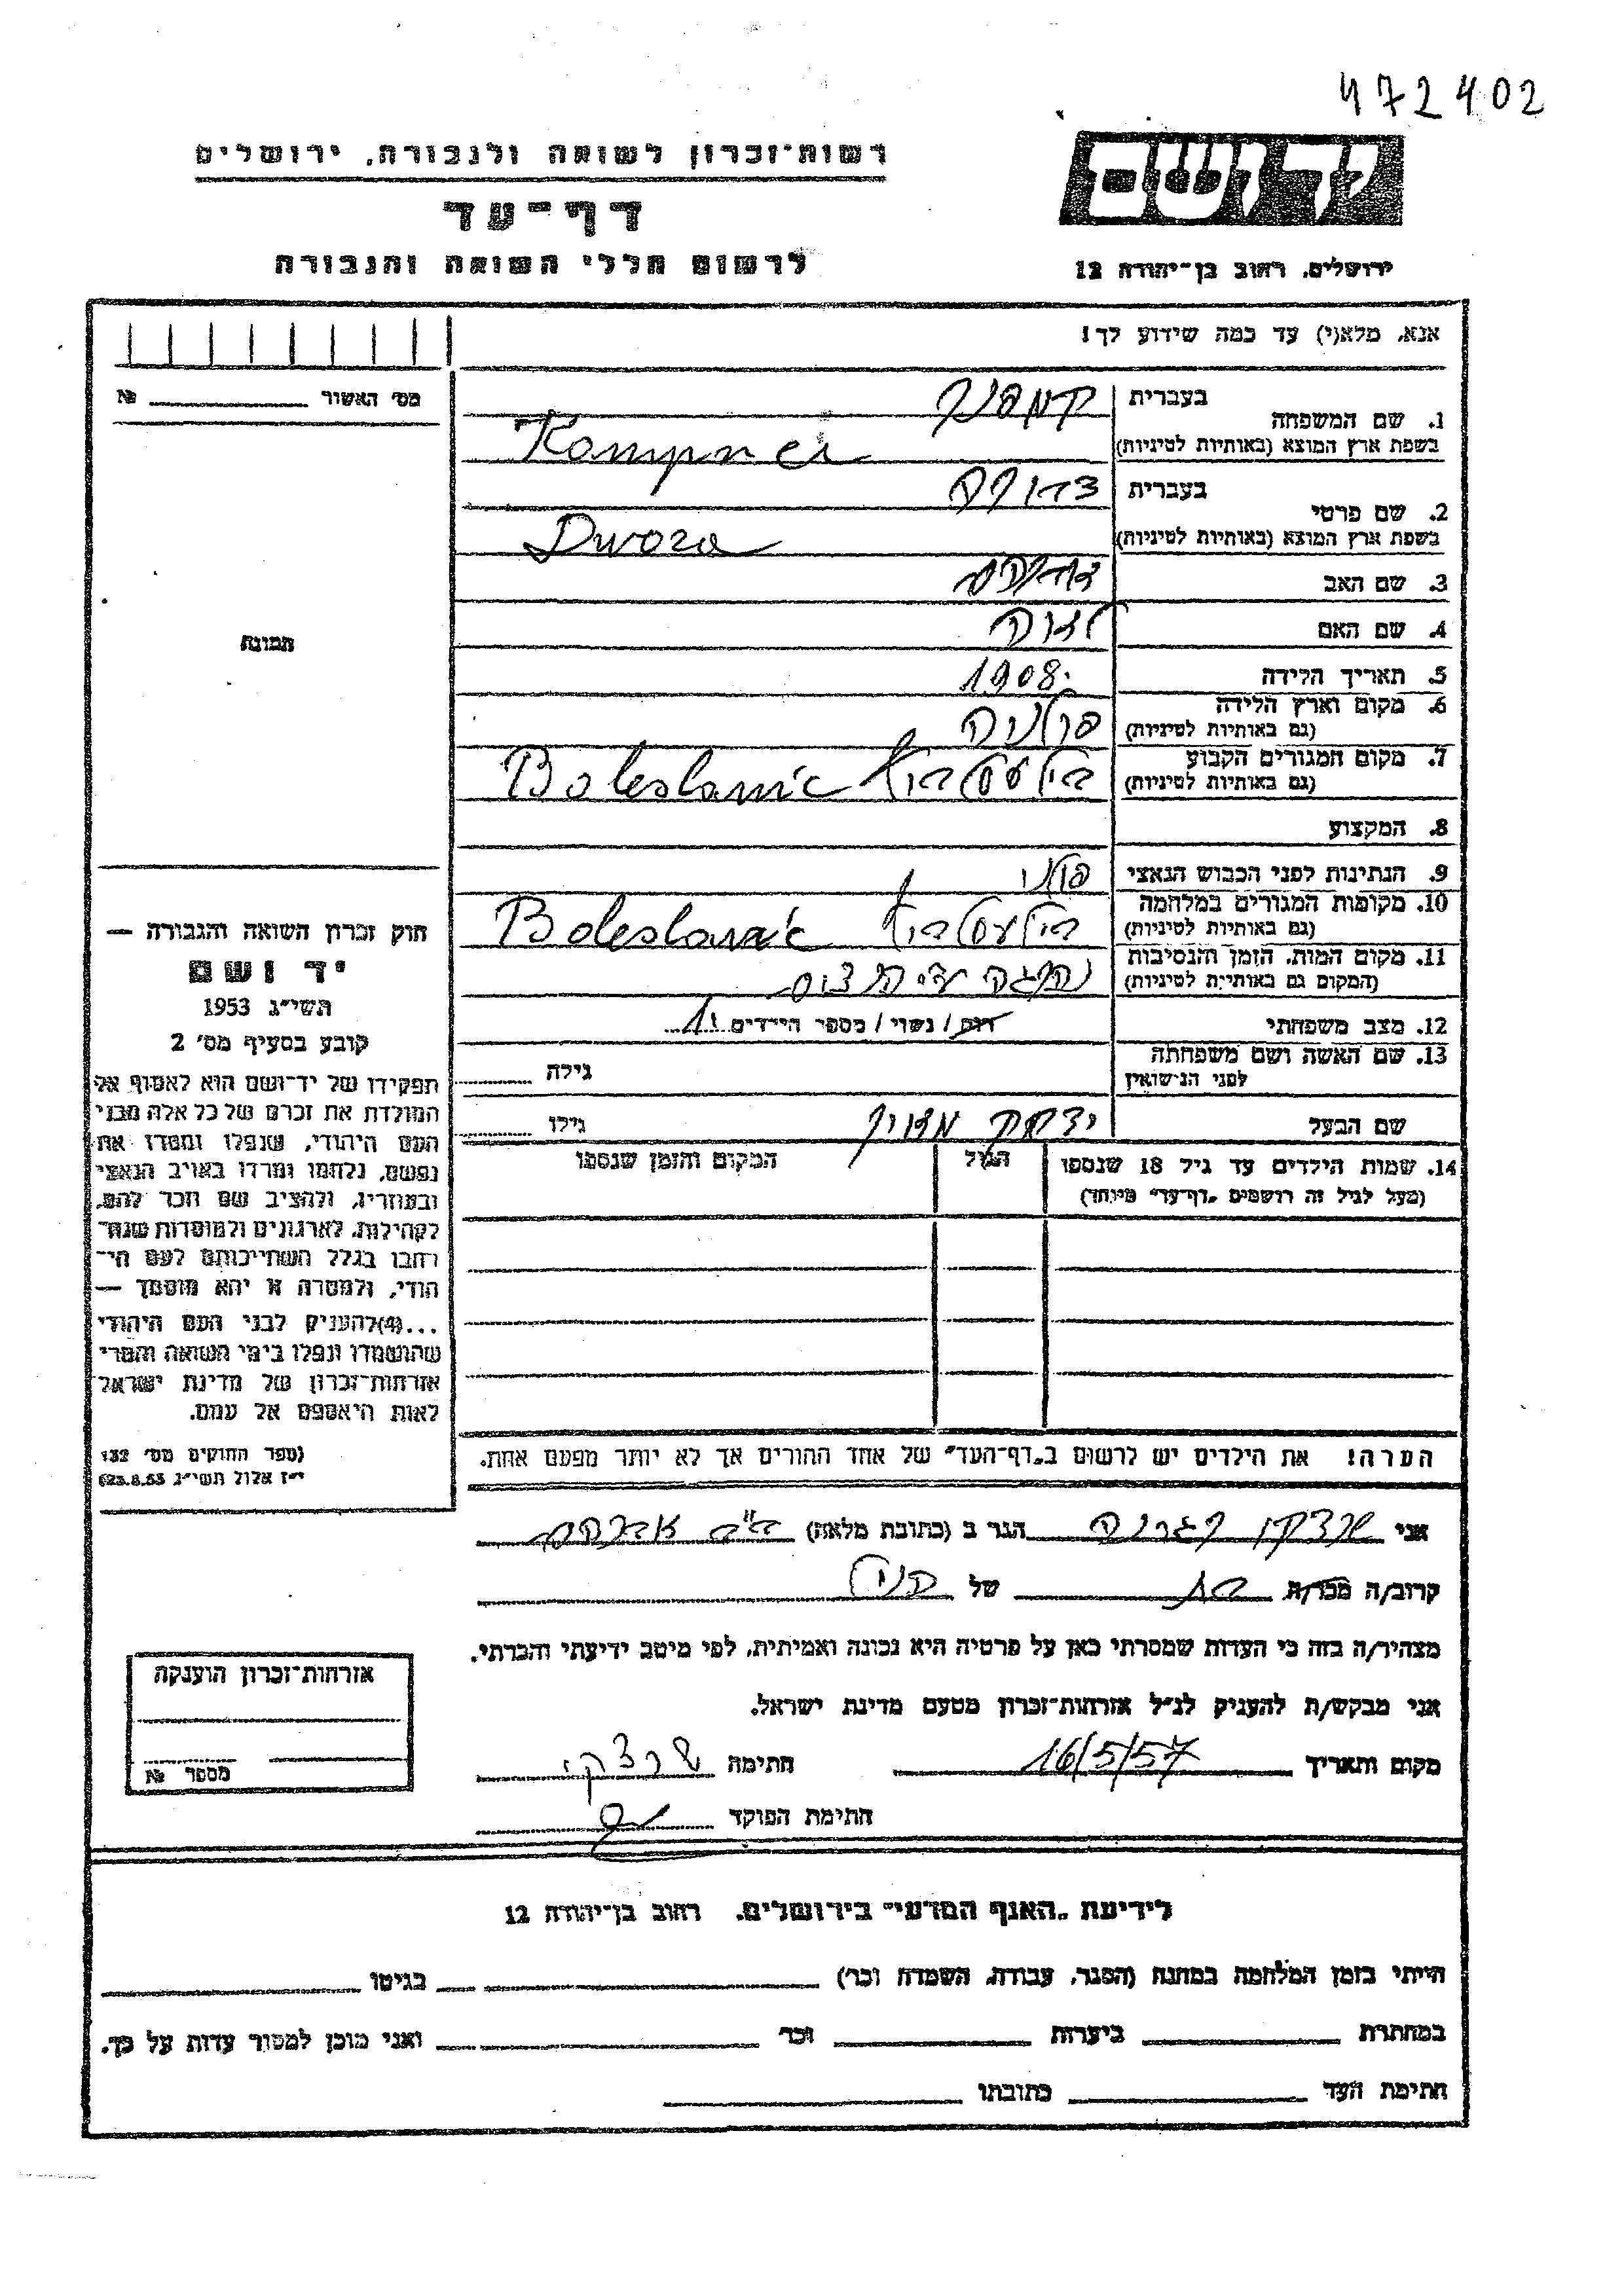 472402
רשות־זכרון לשואה ולגבורה, ירושלים
יד ושם
דף־עד
לרשום חללי השואה והגבורה
ירושלים, רחוב בן־יהודה 12
אנא, מלא(י) עד כמה שידוע לך!
מס׳ האשור № 
1. שם המשפחה
בעברית
בשפת ארץ המוצא (באותיות לטיניות) Kampner
2. שם פרטי
בעברית
בשפת ארץ המוצא (באותיות לטיניות) Dwora
3. שם האב
4. שם האם
5. תאריך הלידה 1908
6. מקום וארץ הלידה
(גם באותיות לטיניות) פולניה
7. מקום המגורים הקבוע
(גם באותיות לטיניות) Boleslawic
8. המקצוע
9. הנתינות לפני הכבוש הנאצי פולני
10. מקומות המגורים במלחמה
(גם באותיות לטיניות) Boleslawic
11. מקום המות, הזמן והנסיבות
(המקום גם באותיות לטיניות)
12. מצב משפחתי רווק / נשוי / מספר הילדים 1
13. שם האשה ושם משפחתה
לפני הנישואין
גילה
שם הבעל יצחק
גילו
14. שמות הילדים עד גיל 18 שנספו
(מעל לגיל זה רושמים „דף־עד” מיוחד)
הגיל
המקום והזמן שנספו
תמונה
חוק זכרון השואה והגבורה —
יד ושם
תשי״ג 1953
קובע בסעיף מס׳ 2
תפקידו של יד־ושם הוא לאסוף אל
המולדת את זכרם של כל אלה מבני
העם היהודי, שנפלו ומסרו את
נפשם, נלחמו ומרדו באויב הנאצי
ובעוזריו, ולהציב שם וזכר להם,
לקהילות, לארגונים ולמוסדות שנח־
רבו בגלל השתייכותם לעם הי־
הודי, ולמטרה זו יהא מוסמך —
...(4) להעניק לבני העם היהודי
שהושמדו ונפלו בימי השואה והמרי
אזרחות־זכרון של מדינת ישראל
לאות היאספם אל עמם.
(ספר החוקים מס׳ 132
י״ז אלול תשי״ג 23.8.53)
הערה! את הילדים יש לרשום ב„דף־העד” של אחד ההורים אך לא יותר מפעם אחת.
אני הגר ב (כתובת מלאה)
קרוב/ה מכר/ה בת של הנ״ל
מצהיר/ה בזה כי העדות שמסרתי כאן על פרטיה היא נכונה ואמיתית, לפי מיטב ידיעתי והכרתי.
אני מבקש/ת להעניק לנ״ל אזרחות־זכרון מטעם מדינת ישראל.
מקום ותאריך 16/5/57 חתימה
חתימת הפוקד
אזרחות־זכרון הוענקה
מספר №
לידיעת „האגף המדעי” בירושלים, רחוב בן־יהודה 12
הייתי בזמן המלחמה במחנה (הסגר, עבודה, השמדה וכו׳) בגיטו
במחתרת ביערות וכו׳ ואני מוכן למסור עדות על כך.
חתימת העד כתובתו